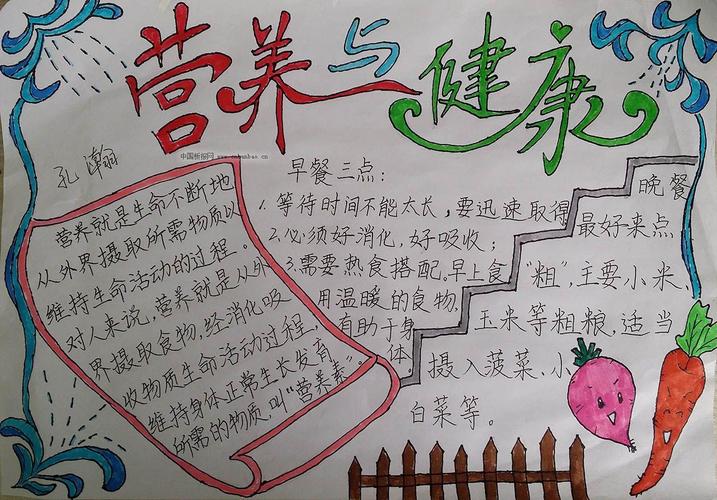 营养与健康
中国板报网 www.cnbanbao.cn
孔瀚
营养就是生命不断地
从外界摄取所需物质以
维持生命活动的过程。
对人来说,营养就是从外
界摄取食物,经消化吸
收物质生命活动过程,
维持身体正常生长发育
所需的物质,叫“营养素”。
早餐三点:
1.等待时间不能太长,要迅速取得
2.必须好消化,好吸收;
3.需要热食搭配。早上食
用温暖的食物,
有助于身
体
晚餐
最好来点
“粗”,主要小米,
玉米等粗粮,适当
摄入菠菜、小
白菜等。